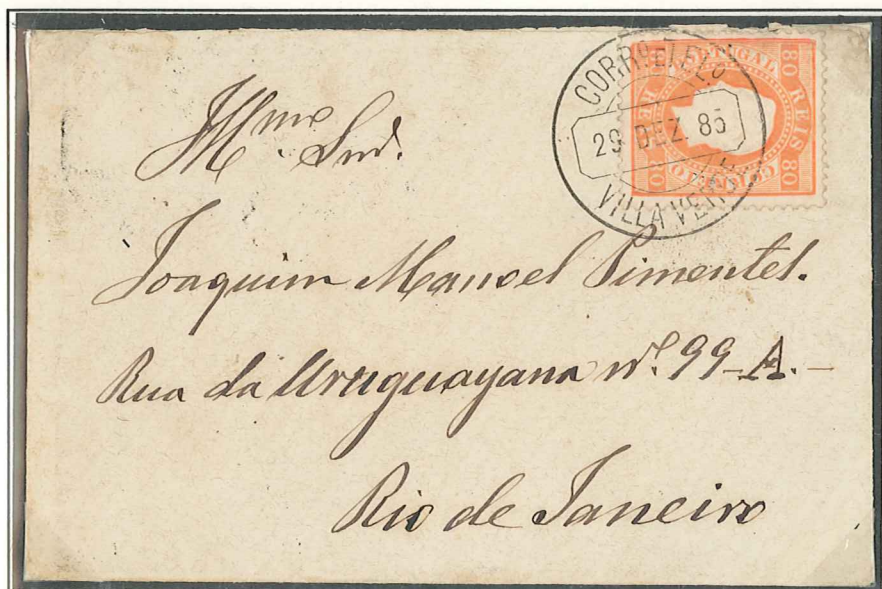 CORRº E TELº
29 DEZ. 85
VILLA VERDE
PORTUGAL
80 REIS 80
CONTINENTE
Illmo. Snr.
Joaquim Manoel Pimentel.
Rua da Uruguayana nº. 99-A.-
Rio de Janeiro